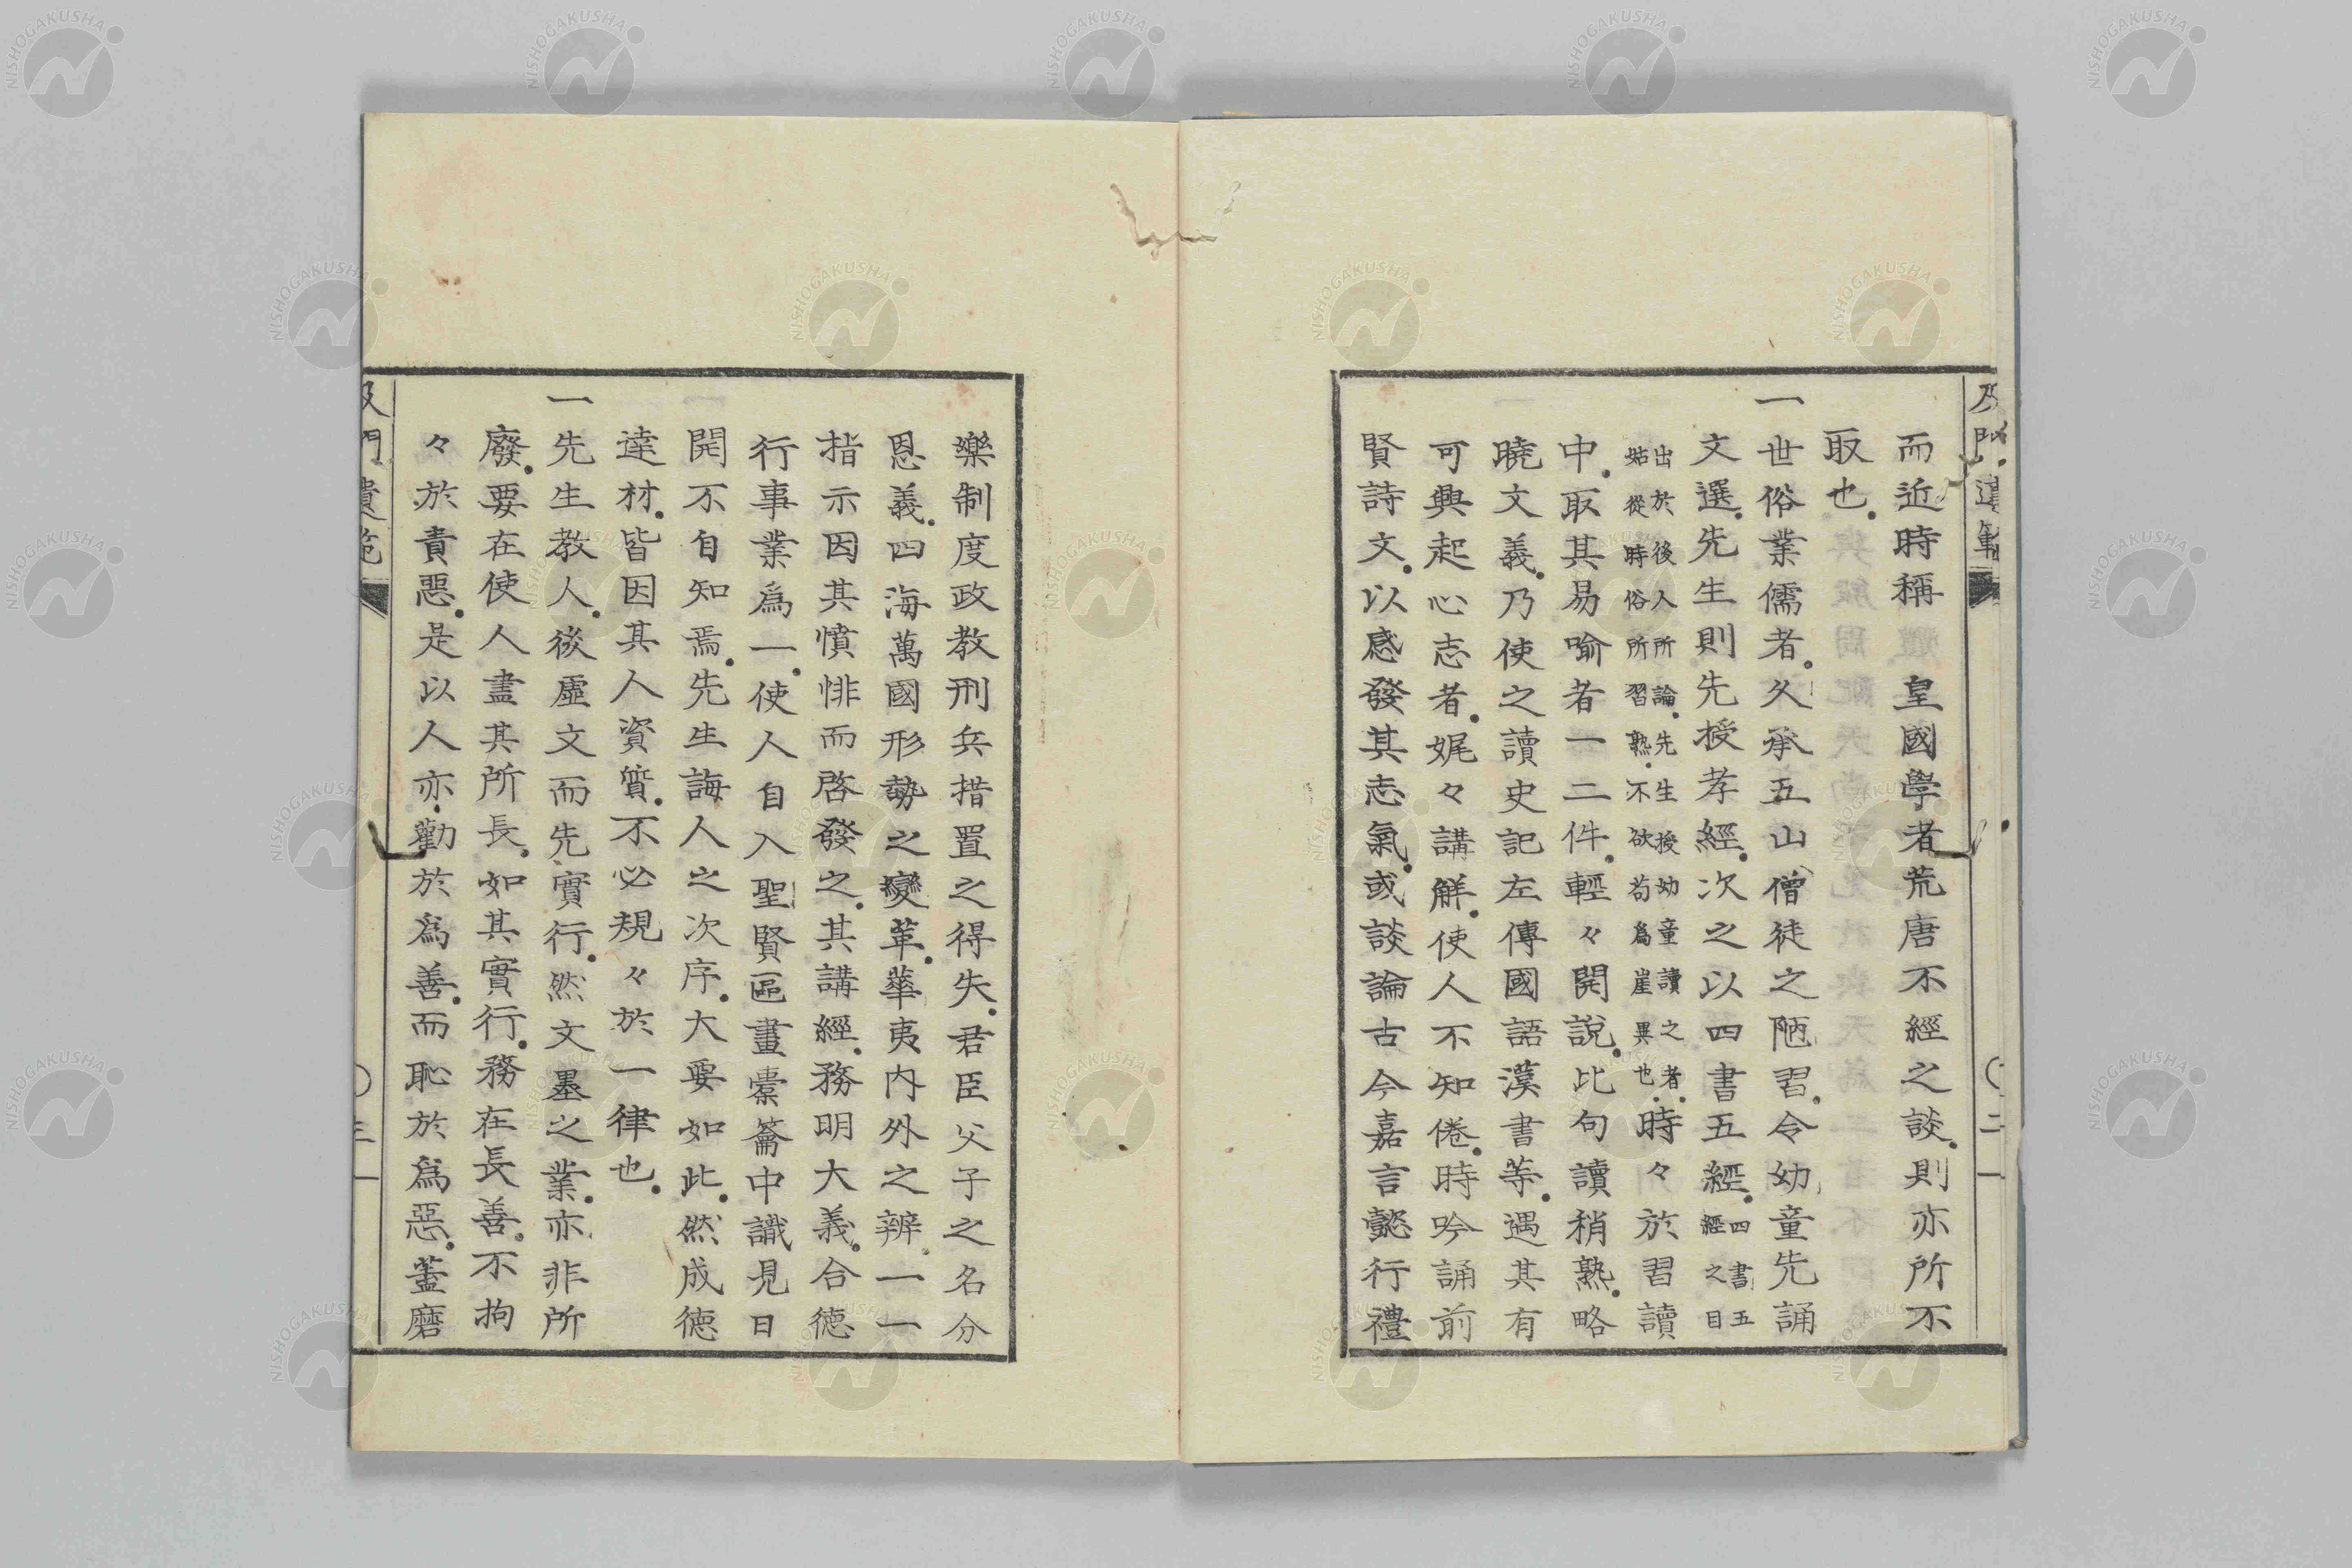 而近時稱 皇國學者荒唐不經之談則亦所不
取也
一世俗業儒者久承五山僧徒之陋習令幼童先誦
文選先生則先授孝經次之以四書五經四書五經之目
出於後人所論先生授幼童讀之者姑從時俗所習熟不欲苟爲崖異也時々於習讀
中取其易喻者一二件輕々開說比句讀稍熟略
曉文義乃使之讀史記左傳國語漢書等遇其有
可興起心志者娓々講解使人不知倦時吟誦前
賢詩文以感發其志氣或談論古今嘉言懿行禮
樂制度政教刑兵措置之得失君臣父子之名分
恩義四海萬國形勢之變革華夷內外之辨一一
指示因其憤悱而啓發之其講經務明大義合德
行事業爲一使人自入聖賢區畫橐籥中識見日
開不自知焉先生誨人之次序大要如此然成德
達材皆因其人資質不必規々於一律也
一先生教人後虛文而先實行然文墨之業亦非所
廢要在使人盡其所長如其實行務在長善不拘
々於責惡是以人亦勸於爲善而恥於爲惡蓋磨
及門遺範
三
NISHOGAKUSHA